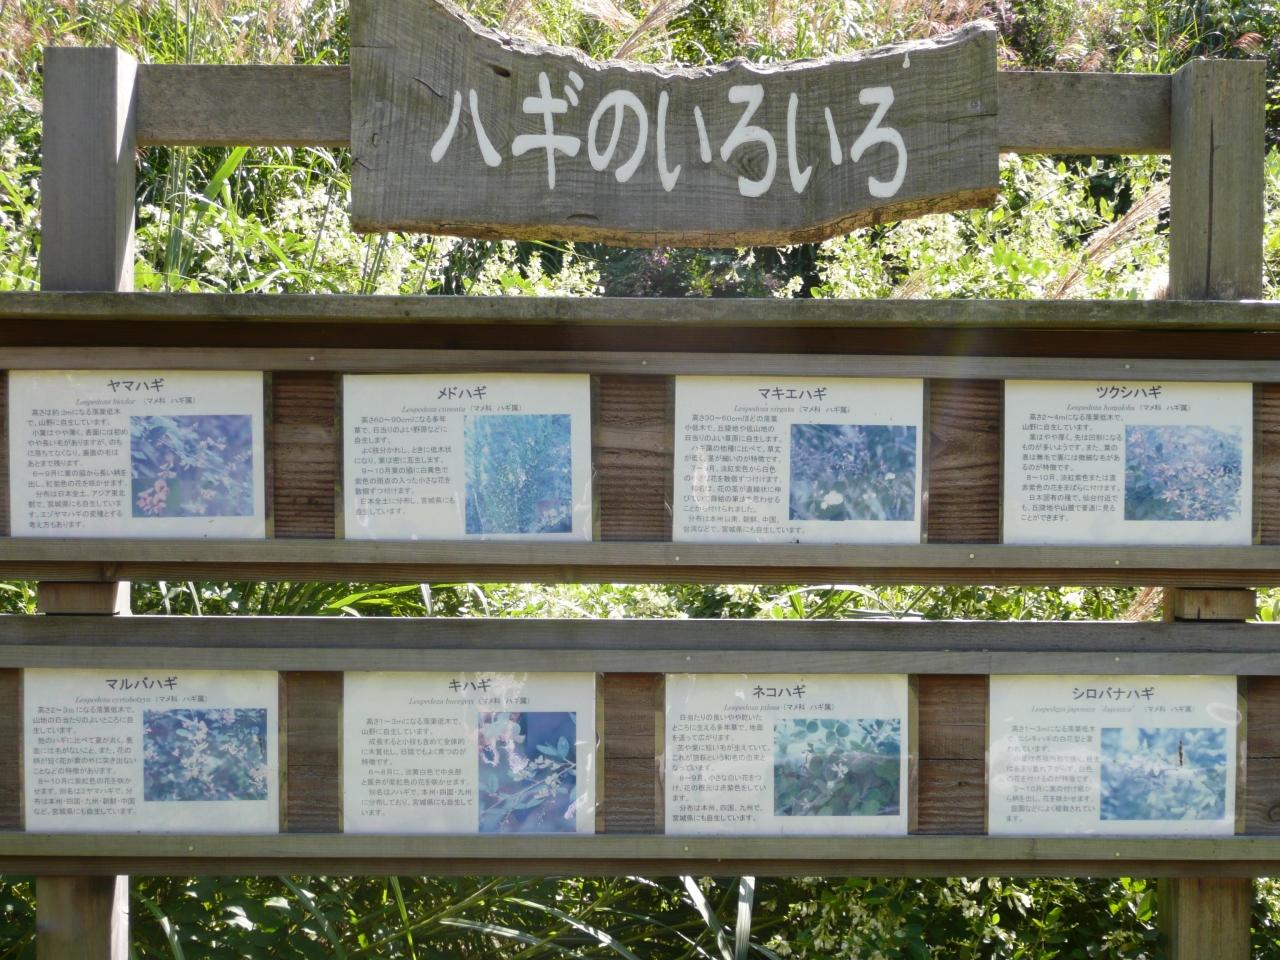 ハギのいろいろ
ヤマハギ
Lespedeza bicolor （マメ科 ハギ属）
高さは約2mになる落葉低木
で、山野に自生しています。
小葉はやや薄く、表面には初め
やや長い毛がありますが、のち
に落ちてなくなり、裏面の毛は
あとまで残ります。
6～9月に葉の脇から長い柄を
出し、紅紫色の花を咲かせます。
分布は日本全土、アジア東北
部で、宮城県にも自生していま
す。エゾヤマハギの変種とする
考え方もあります。
メドハギ
Lespedeza cuneata （マメ科 ハギ属）
高さ60～90cmになる多年
草で、日当りのよい野原などに
自生します。
よく枝分かれし、ときに低木状
になり、葉は密に互生します。
9～10月葉の脇に白黄色で
紫色の斑点の入った小さな花を
数個ずつ付けます。
日本全土に分布し、宮城県にも
自生しています。
マキエハギ
Lespedeza virgata （マメ科 ハギ属）
高さ30～60cmほどの落葉
小低木で、丘陵地や低山地の
日当りのよい草原に自生します。
ハギ属の他種に比べて、草丈
が低く、茎が細いのが特徴です。
7～9月、淡紅紫色から白色
の小さな花を数個ずつ付けます。
和名は、花の茎が直線状に伸
びていて蒔絵の筆法を思わせる
ことから付けられました。
分布は本州以南、朝鮮、中国、
台湾などで、宮城県にも自生しています。
ツクシハギ
Lespedeza homoloba （マメ科 ハギ属）
高さ2～4mになる落葉低木で、
山野に自生します。
葉はやや厚く、先は凹形になる
ものが多いようです。また、葉の
表は無毛で裏には微細な毛があ
るのが特徴です。
8～10月、淡紅紫色または濃
赤紫色の花をまばらに付けます。
日本固有の種で、仙台付近で
も、丘陵地や山麓で普通に見る
ことができます。
マルバハギ
Lespedeza cyrtobotrya （マメ科 ハギ属）
高さ2～3mになる落葉低木で、
山地の日当たりのよいところに自
生しています。
他のハギに比べて葉が丸く、表
面には毛がないこと、また、花の
柄が短く花が葉の外に突き出ない
ことなどの特徴があります。
8～10月に紫紅色の花を咲か
せます。別名はミヤマハギで、分
布は本州・四国・九州・朝鮮・中国
など、宮城県にも自生しています。
キハギ
Lespedeza buergeri （マメ科 ハギ属）
高さ1～3mになる落葉低木で、
山野に自生しています。
成長すると小枝も含めて全体的
に木質化し、日陰でもよく育つのが
特徴です。
6～8月に、淡黄白色で中央部
と翼弁が紫紅色の花を咲かせます。
別名はノハギで、本州・四国・九州
に分布しており、宮城県にも自生して
います。
ネコハギ
Lespedeza pilosa （マメ科 ハギ属）
日当たりの良いやや乾いた
ところに生える多年草で、地面
を這って広がります。
茎や葉に短い毛が生えていて、
これが猫萩という和名の由来と
なっています。
8～9月、小さな白い花をつ
け、花の根元は赤紫色をしてい
ます。
分布は本州、四国、九州で、
宮城県にも自生しています。
シロバナハギ
Lespedeza japonica 'Japonica' （マメ科 ハギ属）
高さ1～3mになる落葉低木
で、ニシキハギの白花型と言
われています。
の花を付けるのが特徴です。
9～10月に葉の付け根か
ら柄を出し、花を咲かせます。
庭園などによく植栽されてい
ます。